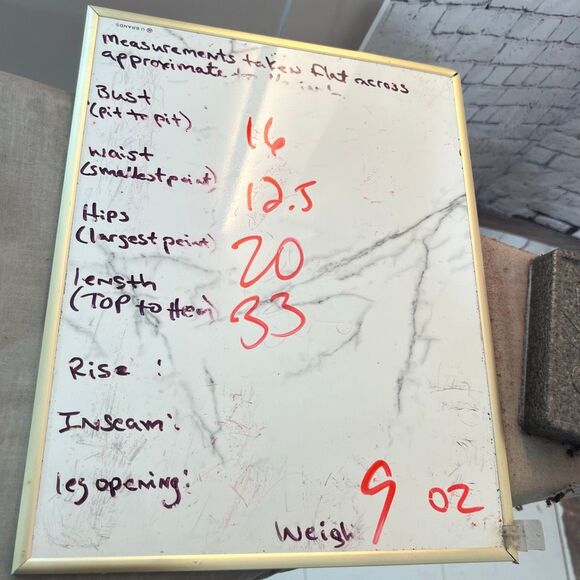 U BRANDS
Measurements taken flat across
approximate
Bust
(pit to pit) 16
waist
(smallest point) 12.5
Hips
(largest point) 20
length
(TOP to Hem) 33
Rise :
Inseam:
leg opening:
Weigh 9 oz